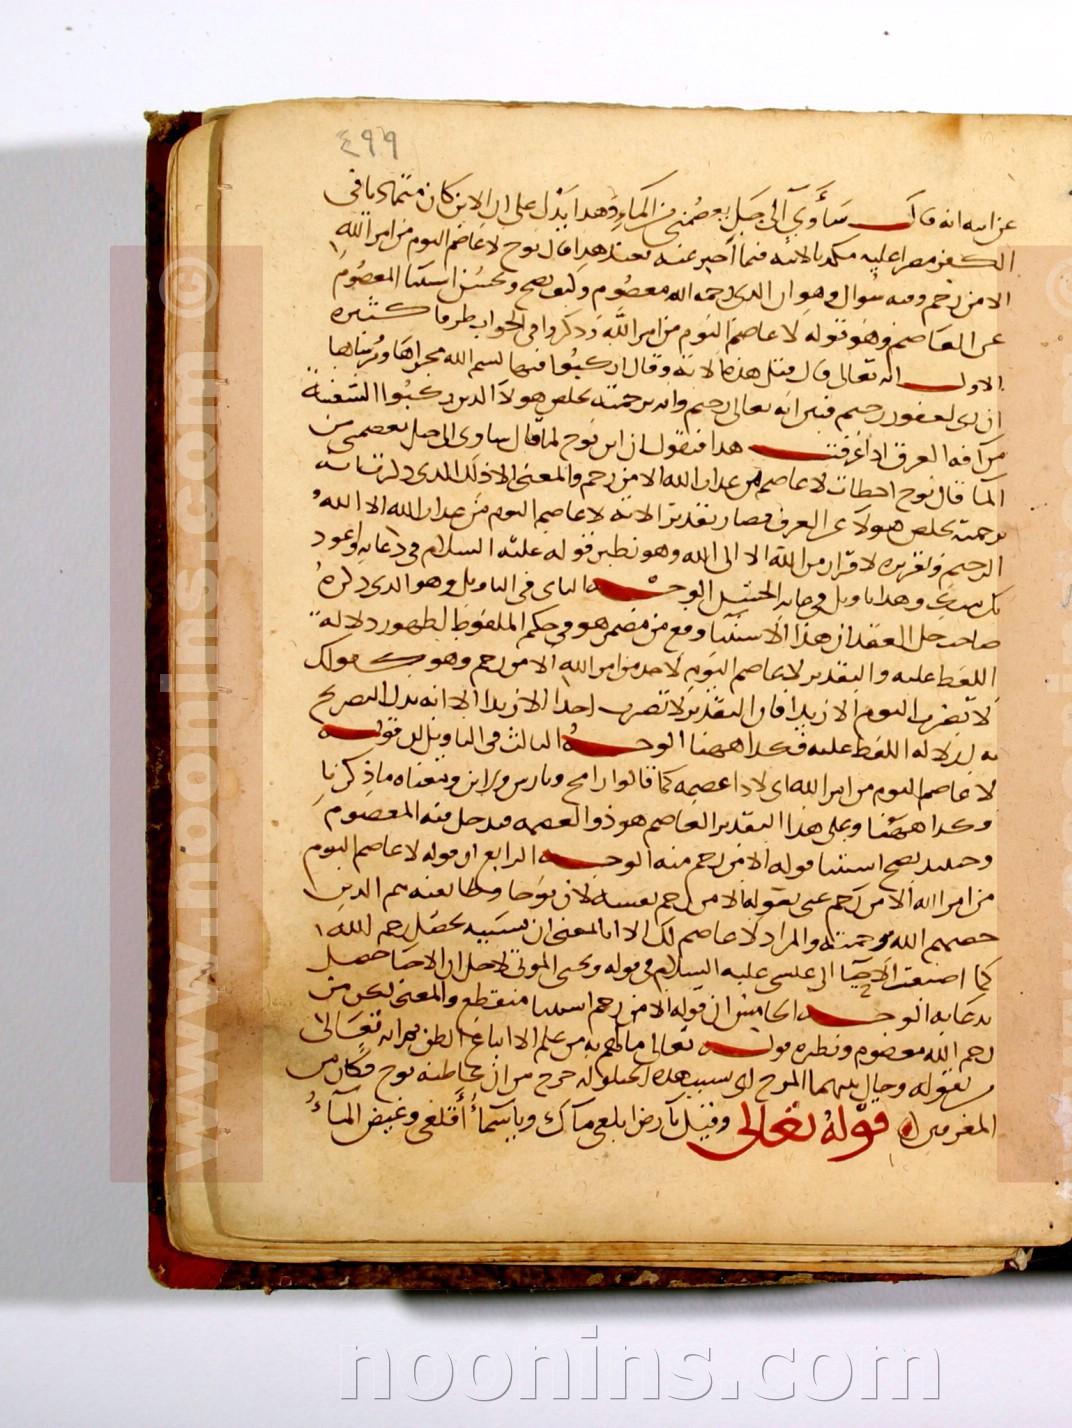 ٤٩٩
عن ابنه انه قال سآوي الى جبل يعصمني من الماء وهذا يدل على ان الابن كان متماديا في
الكفر مصرا عليه مكذبا لابيه فيما اخبر عنه فعند هذا قال نوح لا عاصم اليوم من امر الله
الا من رحم وفيه سوال وهو ان الذي رحمه الله معصوم وكيف يصح ويحسن استثنا المعصوم
عن العاصم وهو قوله لا عاصم اليوم من امر الله ذكروا في الجواب طرقا كثيرة
الاول انه تعالى قال قبل هذه الاية وقال اركبوا فيها بسم الله مجراها ومرساها
ان ربي لغفور رحيم فبين انه تعالى رحيم وانه برحمته يخلص هولا الذين ركبوا السفينة
من آفة الغرق اذا عرفت هذا فنقول ان ابن نوح لما قال ساوي الى جبل يعصمني من
الما قال نوح اخطات لا عاصم من عذاب الله الا من رحم والمعنى الا ذلك الذي ذكرنا انه
برحمته يخلص هولا عن الغرق فصار تقدير الاية لا عاصم اليوم من عذاب الله الا الله
الرحيم وتقريره لا فرار من الله الا الى الله وهو نظير قوله عليه السلام في دعايه واعوذ
بك منك وهذا تاويل في غاية الحسن الوجه الثاني في التاويل وهو الذي ذكره
صاحب حل العقد ان هذا الاستثنا وقع من مضمر هو في حكم الملفوظ لظهور دلالة
اللفظ عليه والتقدير لا عاصم اليوم لاحد من امر الله الا من رحم وهو كقولك
لا تضرب اليوم الا زيدا فان التقدير لا تضرب احدا الا زيدا الا انه ترك التصريح
به لدلالة اللفظ عليه فكذا ههنا الوجه الثالث في التاويل ان قوله
لا عاصم اليوم من امر الله اي لا ذا عصمة كما قالوا رامح وتارس ولابن ومعناه ما ذكرنا
وكذا ههنا وعلى هذا التقدير العاصم هو ذو العصمة فيدخل فيه المعصوم
وحينئذ يصح استثنا قوله الا من رحم منه الوجه الرابع ان قوله لا عاصم اليوم
من امر الله الا من رحم عنى بقوله الا من رحم نفسه لان نوحا وطايفته هم الذين
خصهم الله برحمته والمراد لا عاصم لك الا انا بمعنى ان بسببه تحصل رحمة الله
كما اضيفت الاحيا الى عيسى عليه السلام في قوله واحيي الموتى لاجل ان الاحيا حصل
بدعايه الوجه الخامس ان قوله الا من رحم استثنا منقطع والمعنى لكن من
رحم الله معصوم ونظيره قوله تعالى ما لهم به من علم الا اتباع الظن ثم انه تعالى
بين بقوله وحال بينهما الموج اي بسبب هذه الحيلولة خرج من ان يخاطبه نوح فكان من
المغرقين قوله تعالى وقيل يا ارض ابلعي ماءك ويا سماء أقلعي وغيض الماء
© www.noonins.com
noonins.com